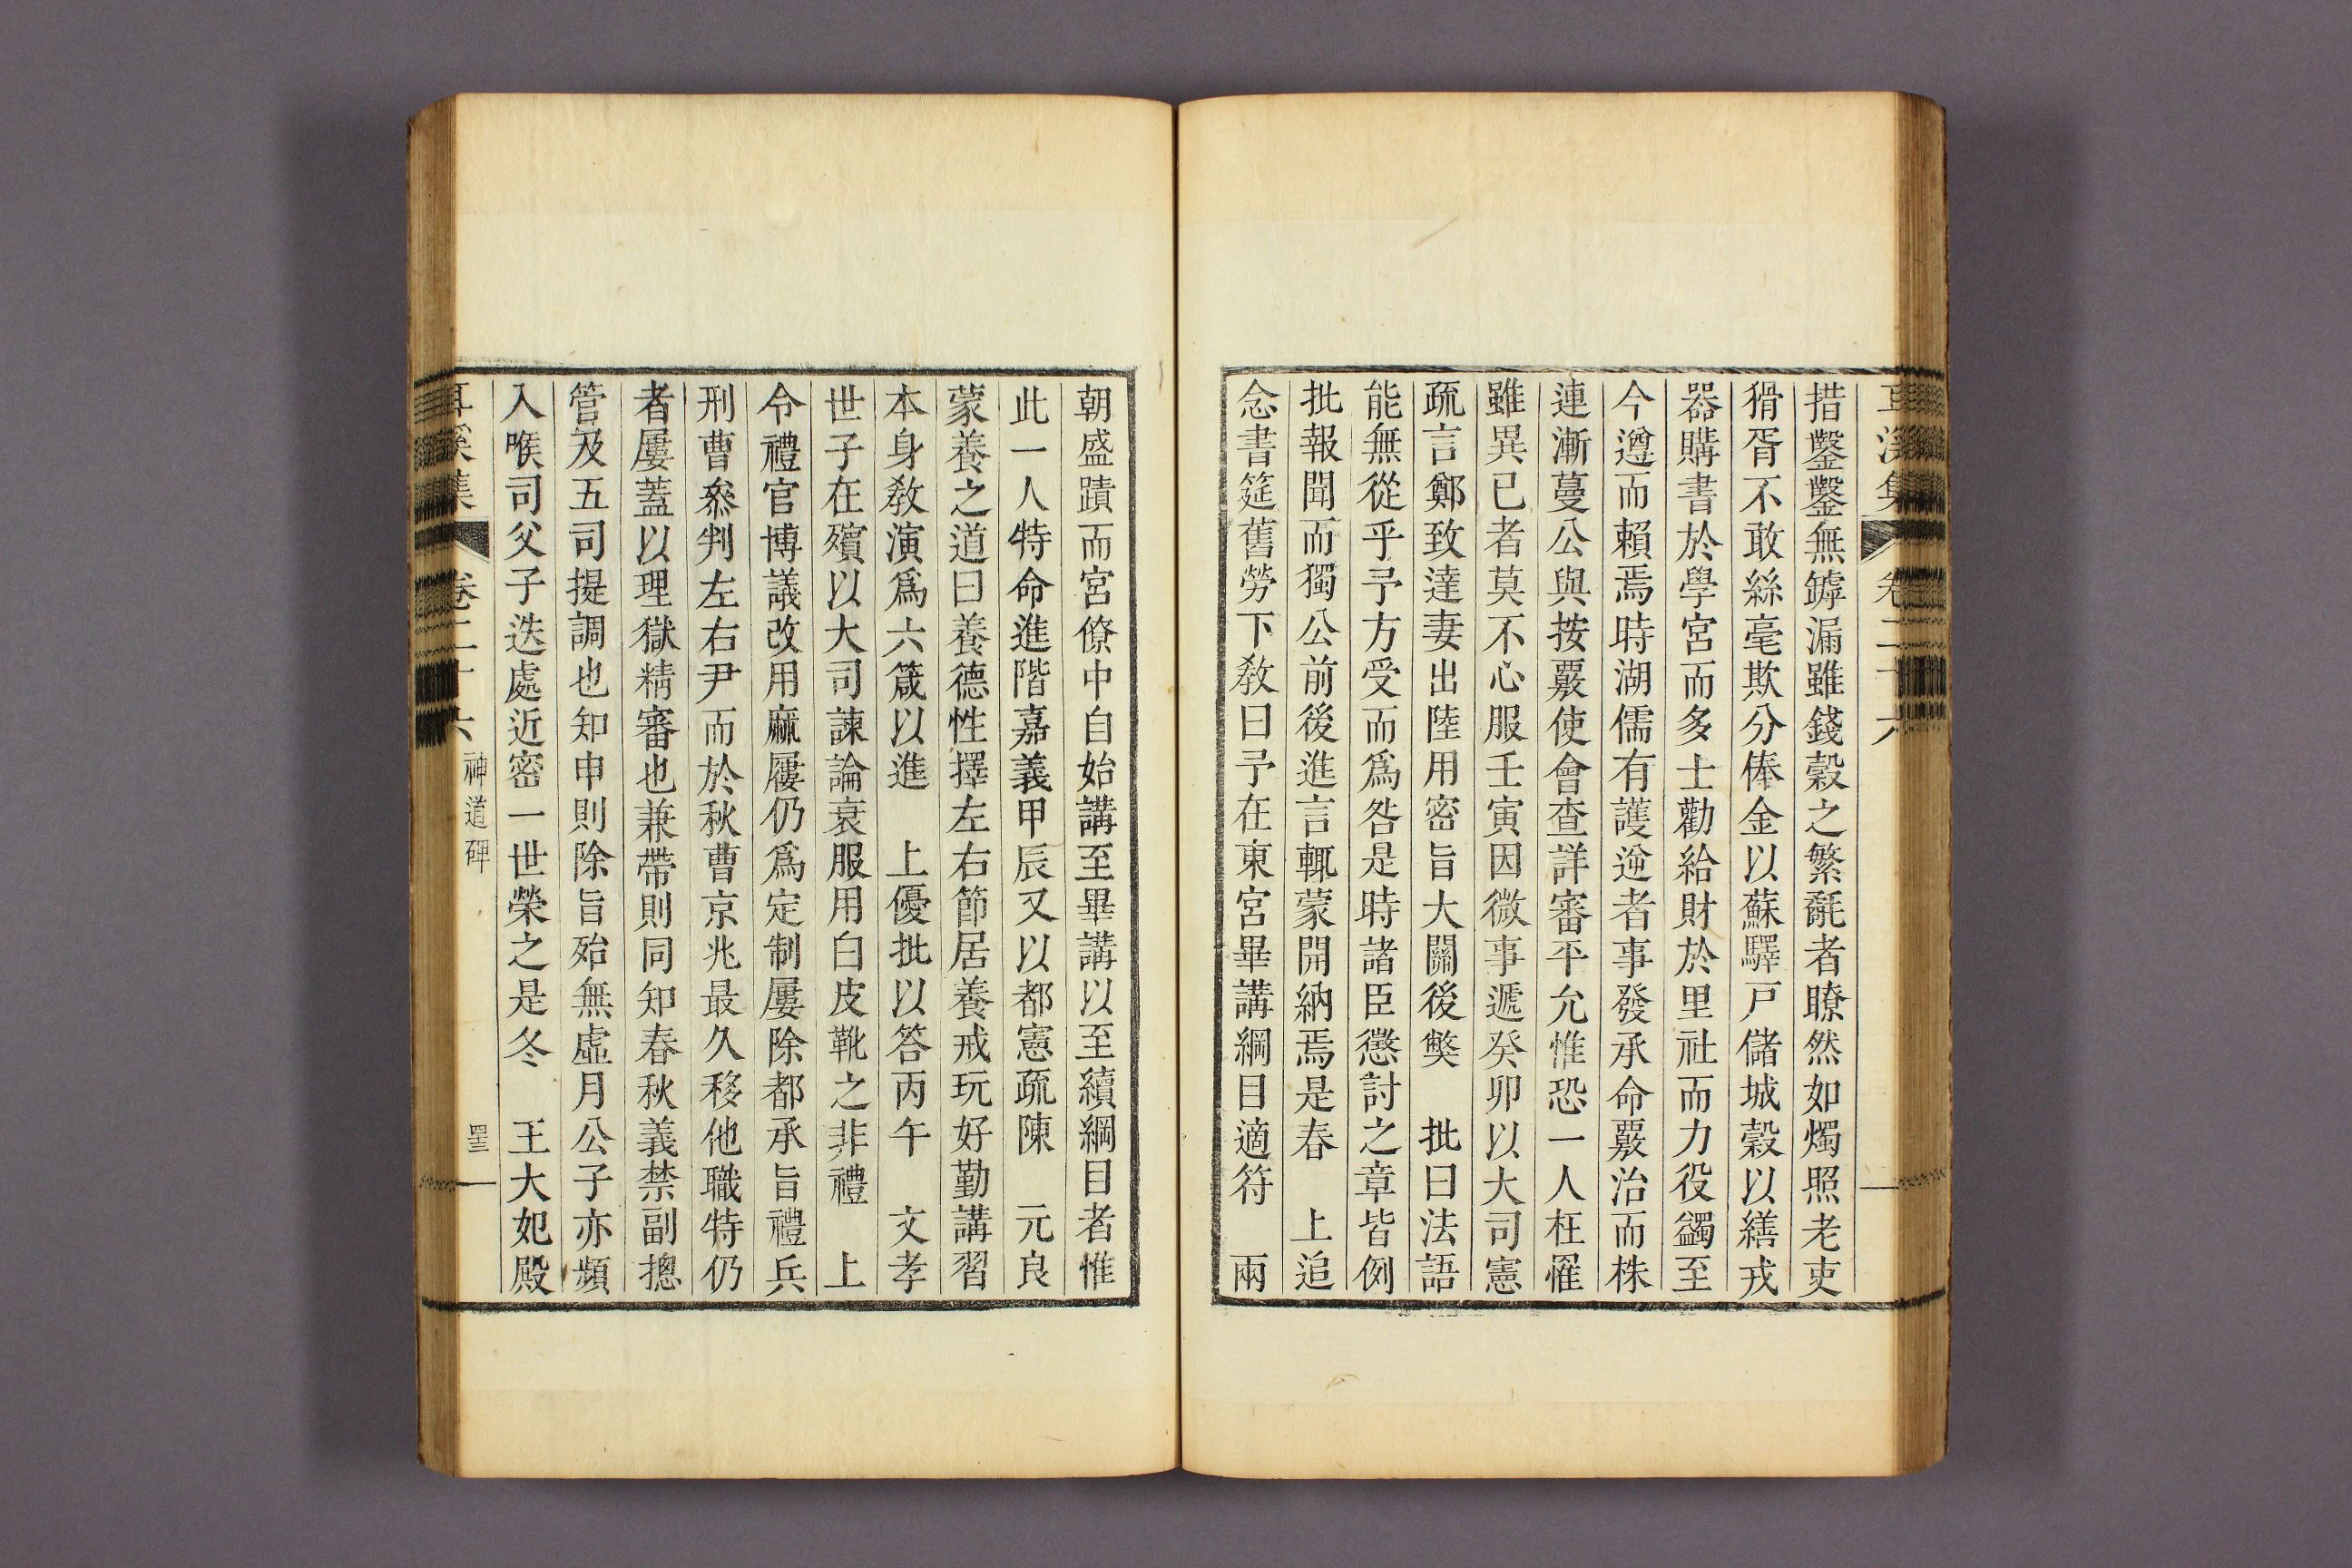 耳溪集 卷二十六
措鑿鑿無罅漏雖錢穀之繁氄者瞭然如燭照老吏
猾胥不敢絲毫欺分俸金以蘇驛戶儲城穀以繕戎
器購書於學宮而多士勸給財於里社而力役蠲至
今遵而賴焉時湖儒有護逆者事發承命覈治而株
連漸蔓公與按覈使會查詳審平允惟恐一人枉罹
雖異已者莫不心服壬寅因微事遞癸卯以大司憲
疏言鄭致達妻出陸用密旨大關後獘 批曰法語
能無從乎予方受而爲咎是時諸臣懲討之章皆例
批報聞而獨公前後進言輒蒙開納焉是春 上追
念書筵舊勞下敎曰予在東宮畢講綱目適符 兩
朝盛蹟而宮僚中自始講至畢講以至續綱目者惟
此一人特命進階嘉義甲辰又以都憲疏陳 元良
蒙養之道曰養德性擇左右節居養戒玩好勤講習
本身敎演爲六箴以進 上優批以答丙午 文孝
世子在殯以大司諫論衰服用白皮靴之非禮 上
令禮官博議改用麻屨仍爲定制屢除都承旨禮兵
刑曹叅判左右尹而於秋曹京兆最久移他職特仍
者屢蓋以理獄精審也兼帶則同知春秋義禁副摠
管及五司提調也知申則除旨殆無虛月公子亦頻
入喉司父子迭處近密一世榮之是冬 王大妃殿
耳溪集 卷二十六 神道碑